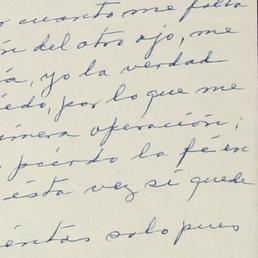 r cuanto me falta
ón del otro ojo, me
á, yo la verdad
iedo, por lo que me
rimera operación;
piérdo la fé en
ésta vez sí quede
éntas solo pues